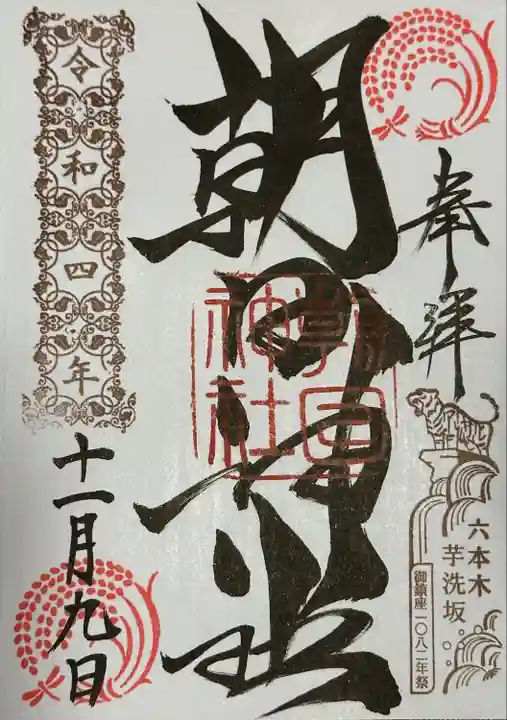 奉拝
六本木
芋洗坂
御鎮座一〇八二年祭
朝日神社
朝日
神社
令和四年
十一月九日